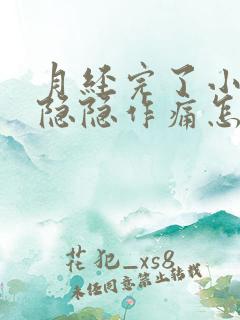 月经完了小
隐隐作痛怎
花犯_xs8
未经同意禁止转载